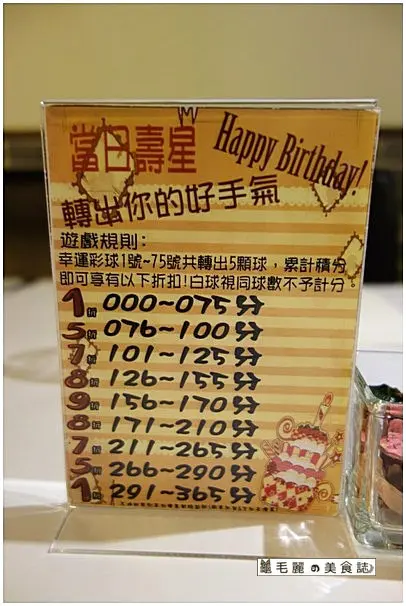 當日壽星
Happy Birthday!
轉出你的好手氣
遊戲規則:
幸運彩球1號~75號共轉出5顆球，累計積分
即可享有以下折扣!白球視同球數不予計分
1折 000~075分
5折 076~100分
7折 101~125分
8折 126~155分
9折 156~170分
8折 171~210分
7折 211~265分
5折 266~290分
1折 291~365分
毛麗の美食誌